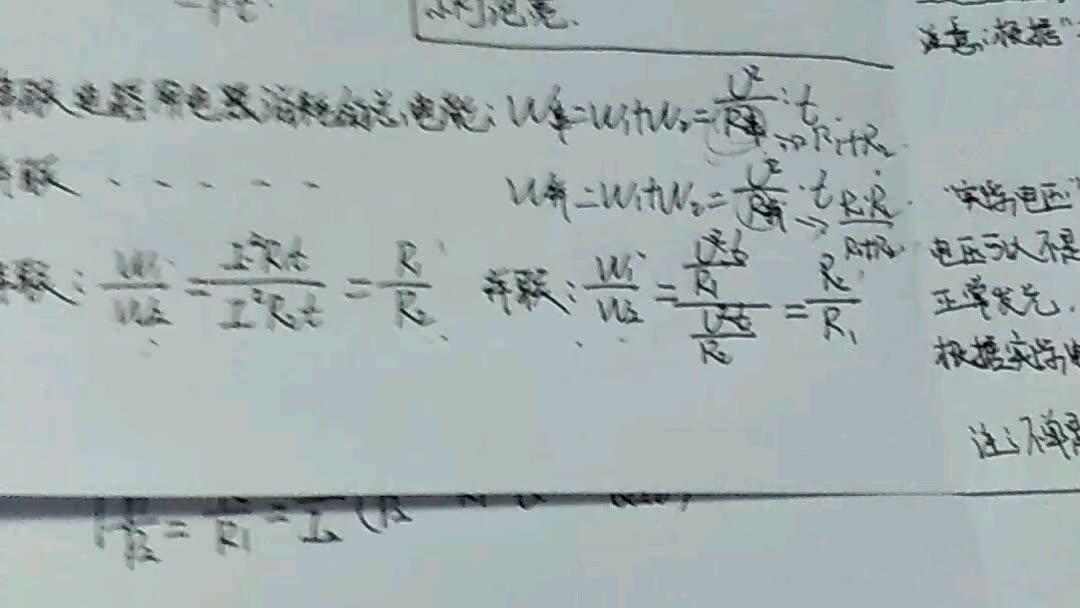 注意:根据"
串联电路中电器消耗的总电能: W串=W₁+W₂=U²/R串·t → R₁+R₂
并联 · · · · · · W并=W₁+W₂=U²/R并·t → R₁·R₂/R₁+R₂
"实际电压"
串联: W₁/W₂=I²R₁t/I²R₂t=R₁/R₂ 并联: W₁/W₂=U²t/R₁/U²t/R₂=R₂/R₁
电压可以不是
正常发光.
根据实际电
注:不单是